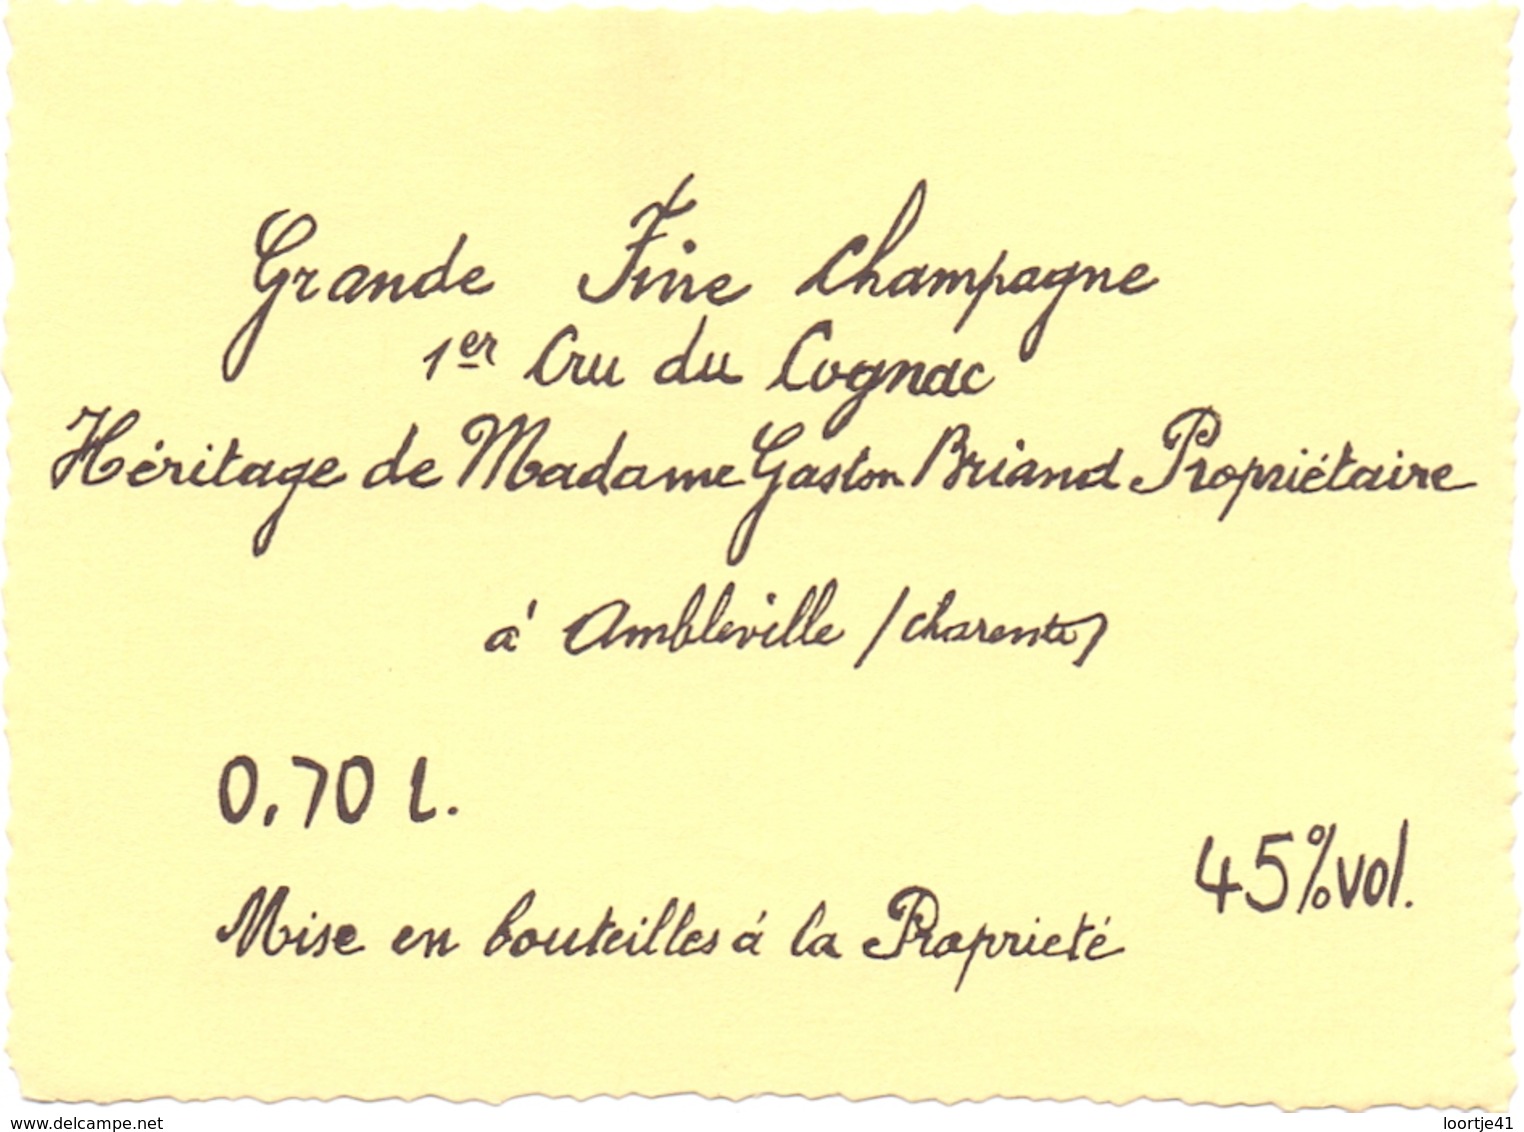 Grande Fine Champagne
1er Cru du Cognac
Héritage de Madame Gaston Briand Propriétaire
à Ambleville (Charente)
0,70 l.
45%vol.
Mise en bouteilles à la Proprieté
www.delcampe.net
loortje41